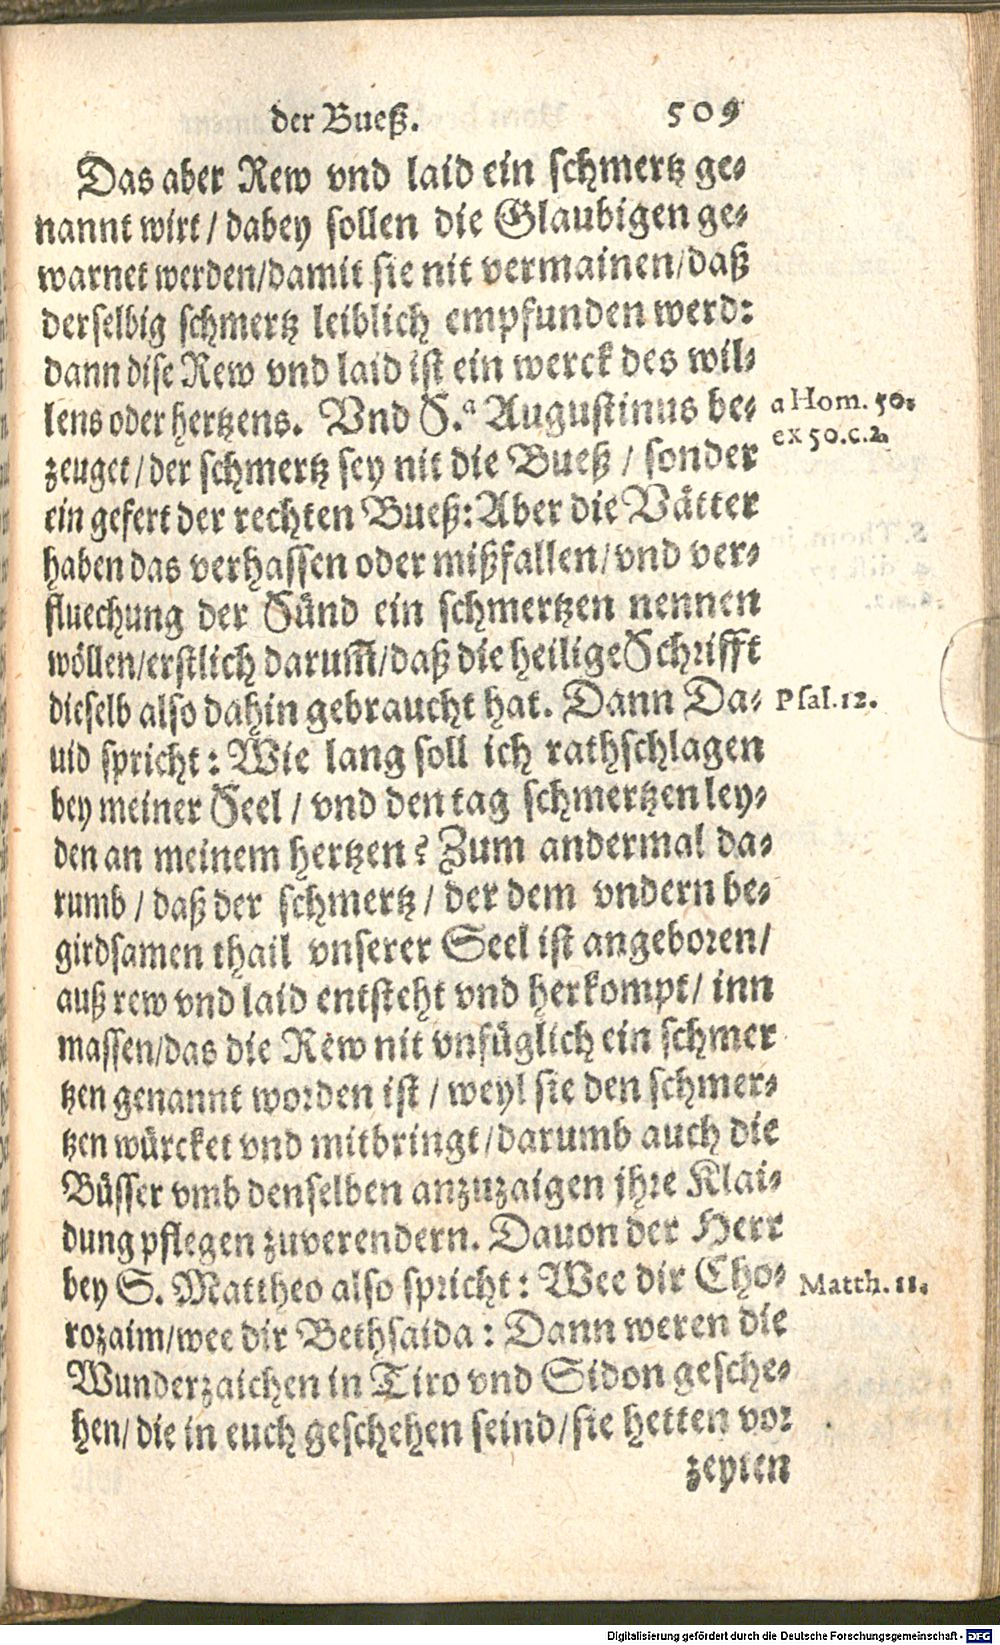 der Bueß. 509
Das aber Rew vnd laid ein schmertz ge-
nannt wirt / dabey sollen die Glaubigen ge-
warnet werden/damit sie nit vermainen/daß
derselbig schmertz leiblich empfunden werd:
dann dise Rew vnd laid ist ein werck des wil-
lens oder hertzens. Vnd S.ª Augustinus be- a Hom. 50.
zeuget / der schmertz sey nit die Bueß / sonder ex 50.c.2.
ein gefert der rechten Bueß: Aber die Vätter
haben das verhassen oder mißfallen/vnd ver-
fluechung der Sünd ein schmertzen nennen
wöllen/erstlich darum̃/daß die heilige Schrifft
dieselb also dahin gebraucht hat. Dann Da- Psal.12.
uid spricht: Wie lang soll ich rathschlagen
bey meiner Seel / vnd den tag schmertzen ley-
den an meinem hertzen? Zum andermal da-
rumb / daß der schmertz / der dem vndern be-
girdsamen thail vnserer Seel ist angeboren/
auß rew vnd laid entsteht vnd herkompt/ inn
massen/das die Rew nit vnfüglich ein schmer
tzen genannt worden ist / weyl sie den schmer-
tzen würcket vnd mitbringt/darumb auch die
Büsser vmb denselben anzuzaigen jhre Klai-
dung pflegen zuverendern. Dauon der Herr
bey S. Mattheo also spricht: Wee dir Cho- Matth. 11.
rozaim/wee dir Bethsaida: Dann weren die
Wunderzaichen in Tiro vnd Sidon gesche-
hen/ die in euch geschehen seind/sie hetten vor
zeyten
Digitalisierung gefördert durch die Deutsche Forschungsgemeinschaft - DFG